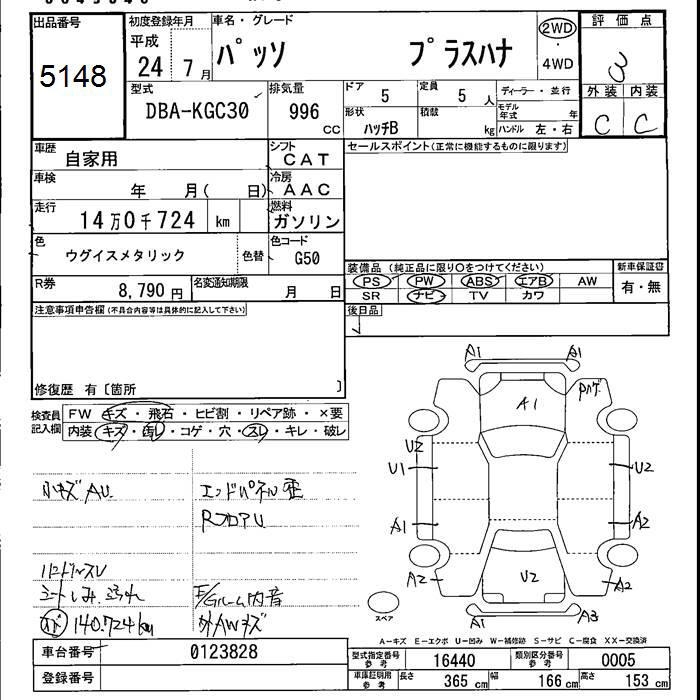 出品番号
5148
初度登録年月
平成
24 7月
車名・グレード
パッソ プラスハナ
2WD
4WD
評価点
外装 内装
C C
型式
DBA-KGC30
排気量
996
CC
ドア
5
定員
5 人
形状
ハッチB
積載
kg
ディーラー・並行
モデル年式 年
ハンドル 左・右
車歴
自家用
シフト
CAT
車検
年 月( 日)
冷房
AAC
走行
14万0千724 km
燃料
ガソリン
色
ウグイスメタリック
色替
色コード
G50
R券
8,790 円
名変通知期限
月 日
セールスポイント(正常に機能するものに限ります)
装備品 (純正品に限り○をつけてください)
PS PW ABS エアB AW
SR ナビ TV カワ
新車保証書
有・無
後日品
注意事項申告欄(不具合内容等は具体的に記入して下さい)
修復歴 有〔箇所 〕
検査員記入欄
FW キズ・飛石・ヒビ割・リペア跡・×要
内装 キズ・汚レ・コゲ・穴・スレ・キレ・破レ
小キズAU
エンドパネル歪
RフロアU
ハンドルスレ
シートしみ、汚れ
140.724km
E/Gルーム内音
外AWキズ
A1 A1
A1
Pハゲ
U2
U1 U2
A1 A2
A2 U2 A2
A1 A3
スペア
A-キズ E-エクボ U-凹み W-補修跡 S-サビ C-腐食 XX-交換済
車台番号
0123828
登録番号
型式指定番号 参考
16440
類別区分番号 参考
0005
車庫証明用 参考
長さ 365 cm 幅 166 cm 高さ 153 cm